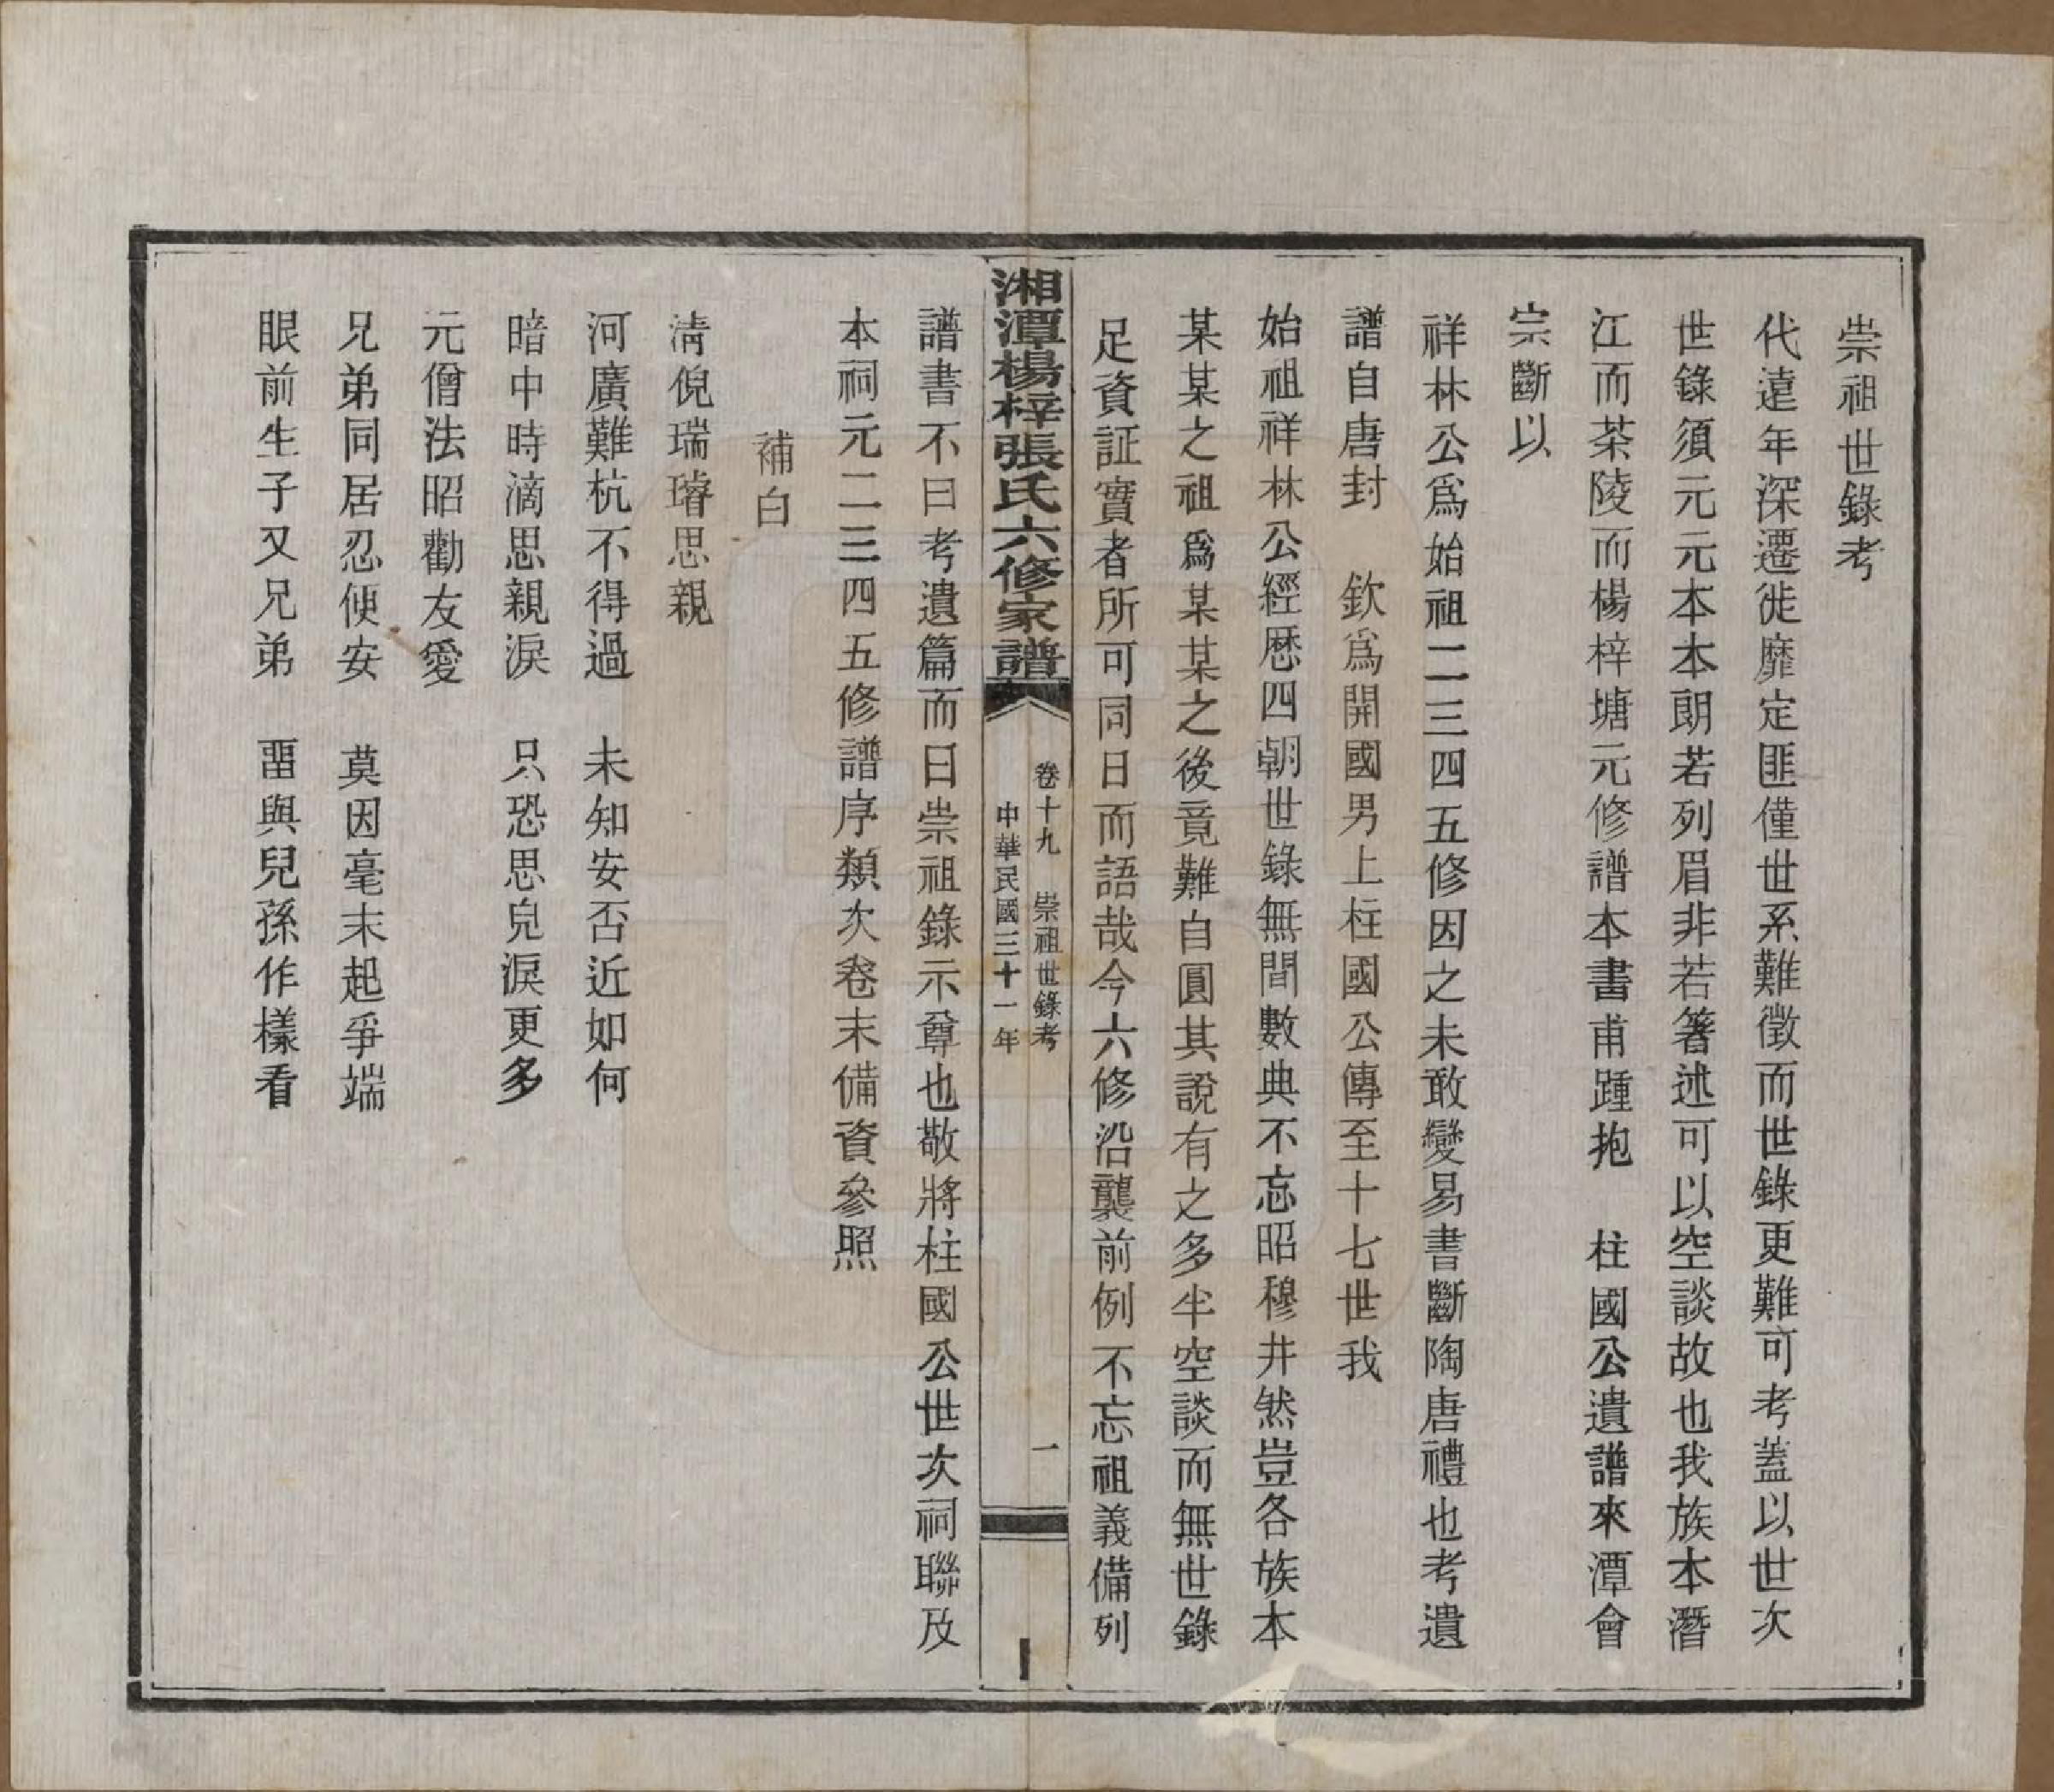 崇祖世錄考
代遠年深遷徙靡定匪僅世系難徵而世錄更難可考蓋以世次
世錄須元元本本朗若列眉非若箸述可以空談故也我族本潛
江而茶陵而楊梓塘元修譜本書甫踵抱　柱國公遺譜來潭會
宗斷以
祥林公爲始祖二三四五修因之未敢變易書斷陶唐禮也考遺
譜自唐封　欽爲開國男上柱國公傳至十七世我
始祖祥林公經歷四朝世錄無間數典不忘昭穆井然豈各族本
某某之祖爲某某之後竟難自圓其說有之多半空談而無世錄
足資証實者所可同日而語哉今六修沿襲前例不忘祖義備列
湘潭楊梓張氏六修家譜
卷十九　崇祖世錄考　一
中華民國三十一年
譜書不曰考遺篇而曰崇祖錄示尊也敬將柱國公世次祠聯及
本祠元二三四五修譜序類次卷末備資參照
補白
清倪瑞璿思親
河廣難杭不得過　未知安否近如何
暗中時滴思親淚　只恐思兒淚更多
元僧法昭勸友愛
兄弟同居忍便安　莫因毫末起爭端
眼前生子又兄弟　畱與兒孫作樣看